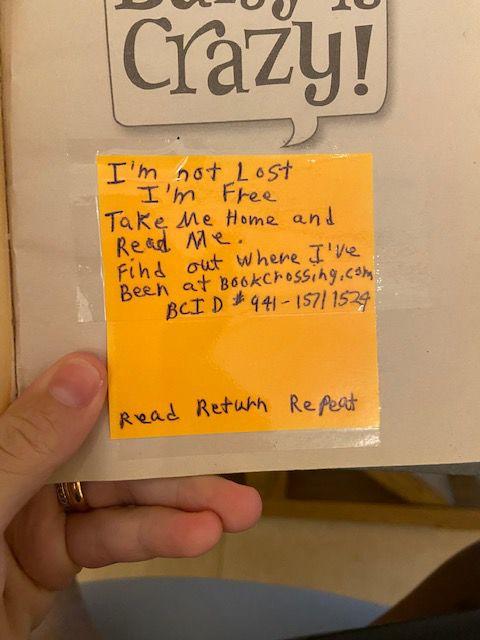 Daisy is
Crazy!
I'm not Lost
I'm Free
Take Me Home and
Read Me.
Find out where I've
Been at BookCrossing.com
BCID # 941-15711524
Read Return Repeat